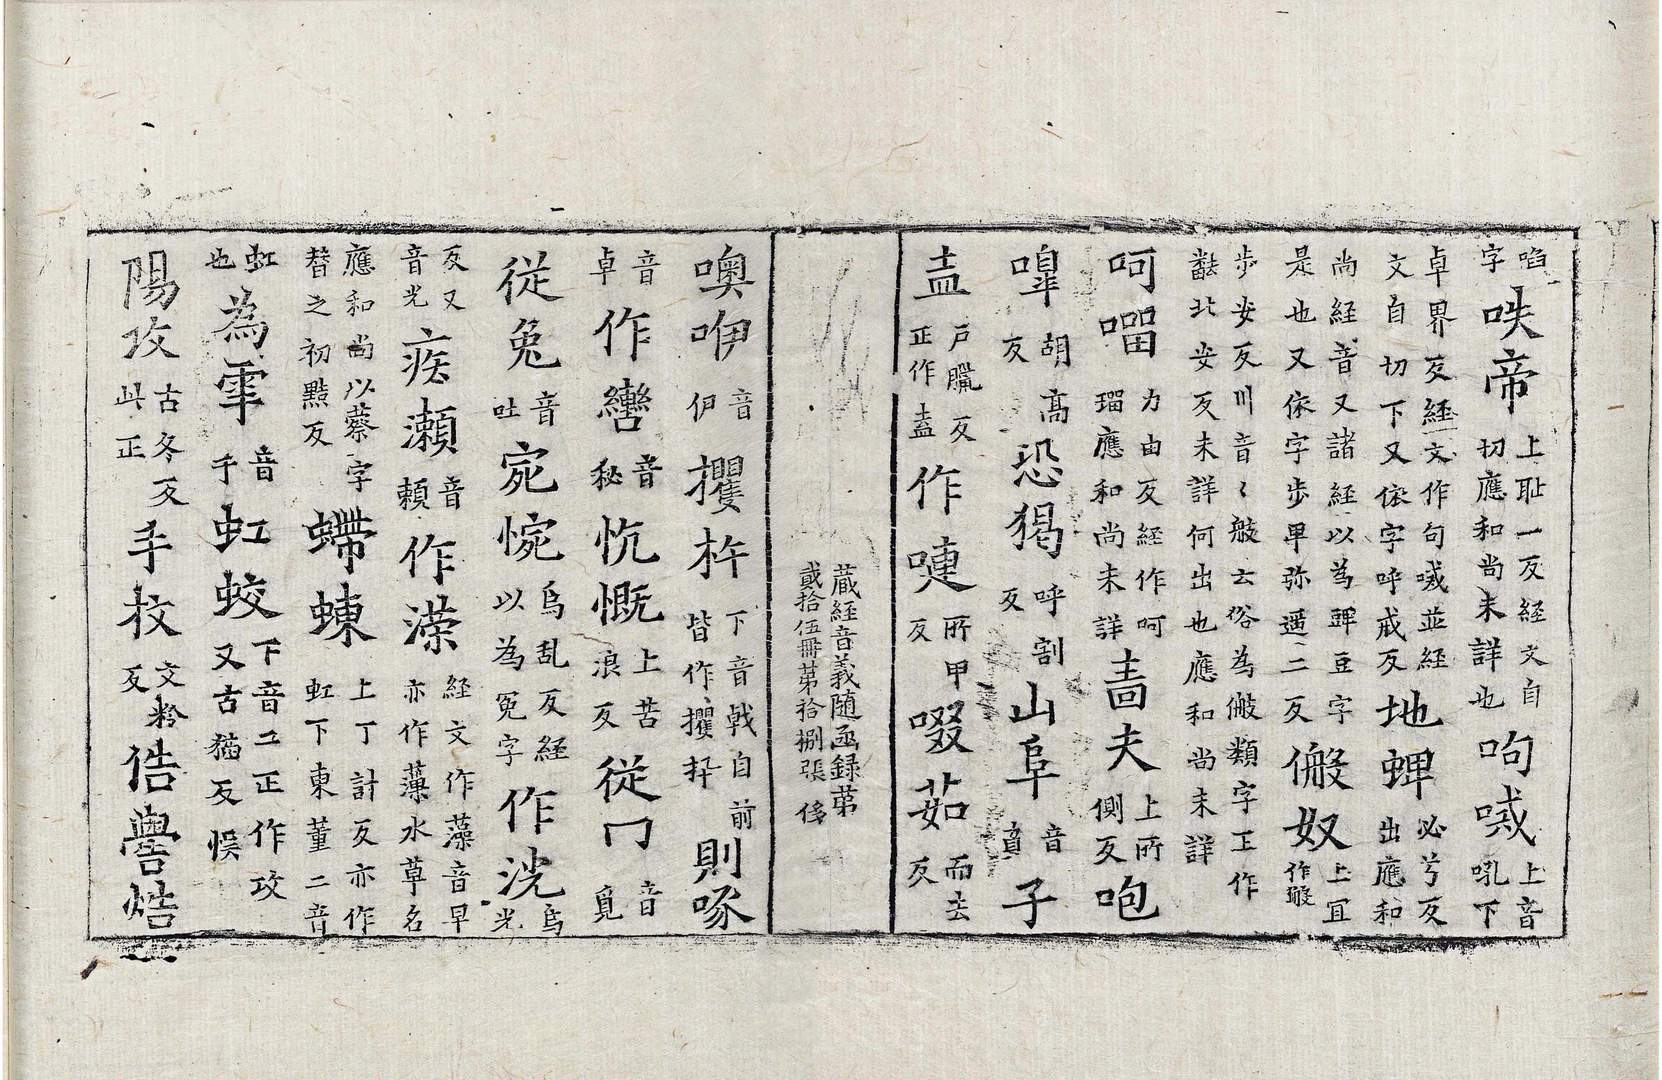 啗字呋帝上耻一反経文自切應和尚未詳也呴嘁上音吼下
卓界反経文作句嘁並経文自切下又依字呼戒反地蜱必兮反出應和
尚経音又諸経以為蜱豆字是也又依字步卑弥遥二反㒆奴上冝作𣪍
步安反川音〻般云俗為㒆類字正作㽃北安反未詳何出也應和尚未詳
呵㗰力由反経作呵瑠應和尚未詳啬夫上所側反咆
嘷胡高反恐猲呼割反山阜音負子
盍戸臈反正作盇作啑所甲反啜茹而去反
蔵経音義随函録苐貳拾伍冊苐拾捌張 侈
噢咿音伊攫杵下音戟自前皆作攫𢪛則啄
音卓作轡音秘忼慨上苦浪反従冖音覓
従兔音吐宛惋烏乱反経以為寃字作洸烏光
反又音光疾瀬音頼作藻経文作藻音早亦作薻水草名
應和尚以蔡字替之初黠反䗖蝀上丁計反亦作虹下東董二音
虹也為䨒音千虹蛟下音工正作攻又古猶反悞
陽攻古冬反此正手抆文粉反俈嚳焅